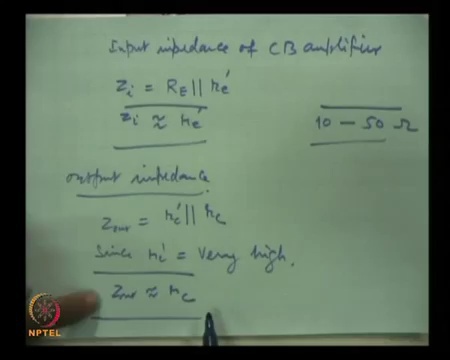 Input impedance of CB amplifier
Zi = RE || re'
Zi ≈ re'
10 – 50 Ω
output impedance.
Zout = rc' || rc
Since rc' = Very high.
Zout ≈ rc
NPTEL